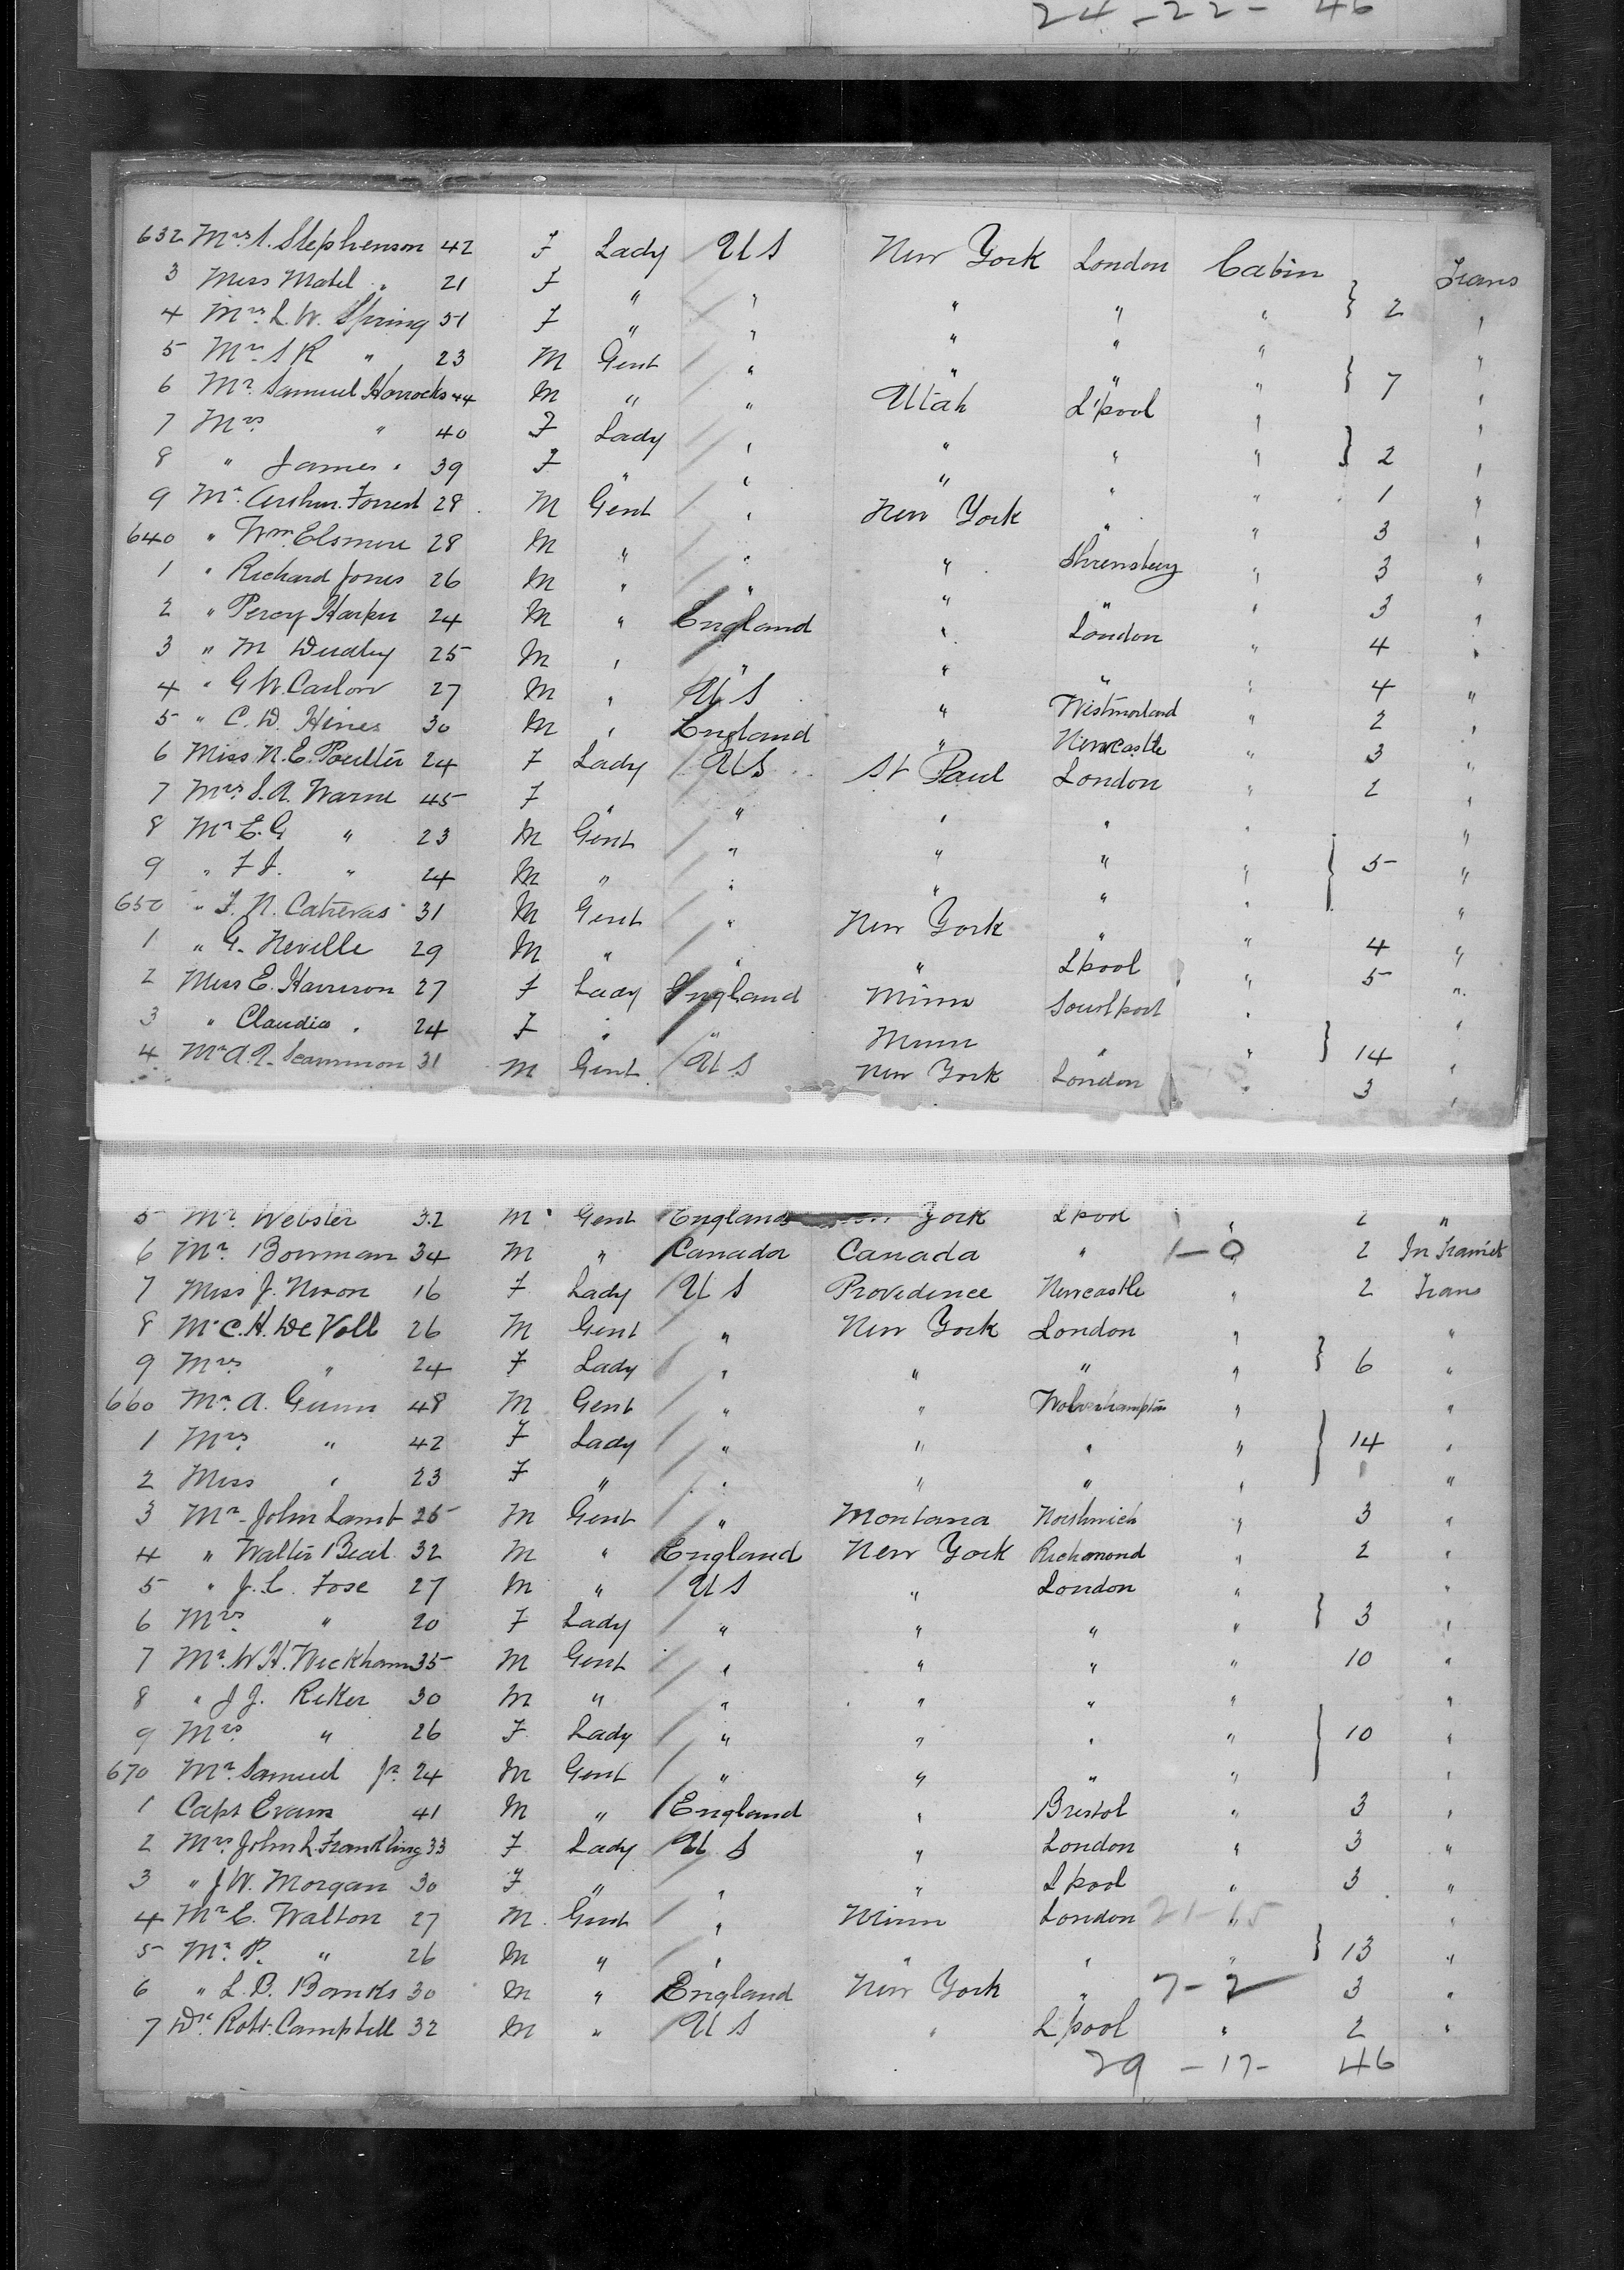 24 - 22 - 46
632 Mrs. S. Stephenson 42 F Lady U S New York London Cabin } 2 Trans
3 Miss Mabel " 21 F " " " " " "
4 Mrs. L. W. Spring 51 F " " " " " } 7 "
5 Mr. S R " 23 M Gent " " " " "
6 Mr. Samuel Horrocks 44 M " " Utah L'pool " } 2 "
7 Mrs " 40 F Lady " " " " "
8 " James " 39 F " " " " " 1 "
9 Mr. Arthur Forrest 28 M Gent " New York " " 3 "
640 " Wm. Elsmere 28 M " " " Shrewsbury " 3 "
1 " Richard Jones 26 M " " " " " 3 "
2 " Percy Harper 24 M " England " London " 4 "
3 " M Dudley 25 M " " " " " 4 "
4 " G W. Carlow 27 M " U S " Westmorland " 2 "
5 " C. D. Hines 30 M " England " Newcastle " 3 "
6 Miss N. E. Poulter 24 F Lady U S St Paul London " 2 "
7 Mrs. S. A. Warne 45 F " " " " " "
8 Mr E. G " 23 M Gent " " " " } 5 "
9 " F J. " 24 M " " " " " "
650 " F. N. Catrevas 31 M Gent " New York " " 4 "
1 " G. Neville 29 M " " " L'pool " 5 "
2 Miss E. Harrison 27 F Lady England Minn Southport " "
3 " Claudia " 24 F " " Minn " " } 14 "
4 Mr A. Q. Scammon 31 M Gent U S New York London " 3 "
5 Mr. Webster 32 M Gent England York L'pool " 2 "
6 Mr. Bowman 34 M " Canada Canada " 1-0 " 2 In Transit
7 Miss J. Nixon 16 F Lady U S Providence Newcastle " 2 Trans
8 Mr C. H. De Voll 26 M Gent " New York London " "
9 Mrs " 24 F Lady " " " " } 6 "
660 Mr. A. Gunn 48 M Gent " " Wolverhampton " "
1 Mrs. " 42 F Lady " " " " } 14 "
2 Miss " 23 F " " " " " "
3 Mr. John Lamb 25 M Gent " Montana Northwich " 3 "
4 " Walter Beal 32 M " England New York Richmond " 2 "
5 " J. C. Fose 27 M " U S " London " "
6 Mrs. " 20 F Lady " " " " } 3 "
7 Mr. W. H. Wickham 35 M Gent " " " " 10 "
8 " J J. Reker 30 M " " " " " "
9 Mrs " 26 F Lady " " " " } 10 "
670 Mr. Samuel Jr. 24 M Gent " " " " "
1 Capt Evans 41 M " England " Bristol " 3 "
2 Mrs. John L. Frankling 33 F Lady U S " London " 3 "
3 " J W. Morgan 30 F " " " L'pool " 3 "
4 Mr C. Walton 27 M Gent " Minn London 21-15 " "
5 Mr. P. " 26 M " " " " " } 13 "
6 " L. B. Banks 30 M " England New York " 7-2 3 "
7 Dr. Robt. Campbell 32 M " U S " L'pool " 2 "
29 - 17 - 46